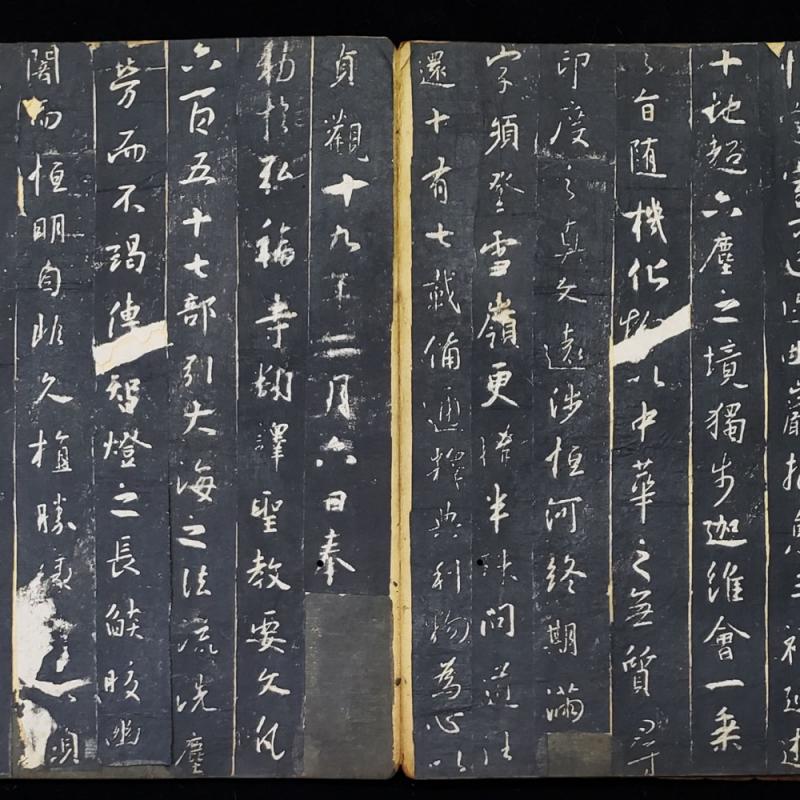 十地超六塵之境獨步迦維會一乘
之旨随機化物以中華之無質尋
印度之真文遠涉恒河終期滿
字頻登雪嶺更獲半珠問道往
還十有七載備通釋典利物為心以
貞觀十九年二月六日奉
勅於弘福寺翻譯聖教要文凡
六百五十七部引大海之法流洗塵
勞而不竭傳智燈之長皎幽
闇而恒明自非久植勝緣以顯